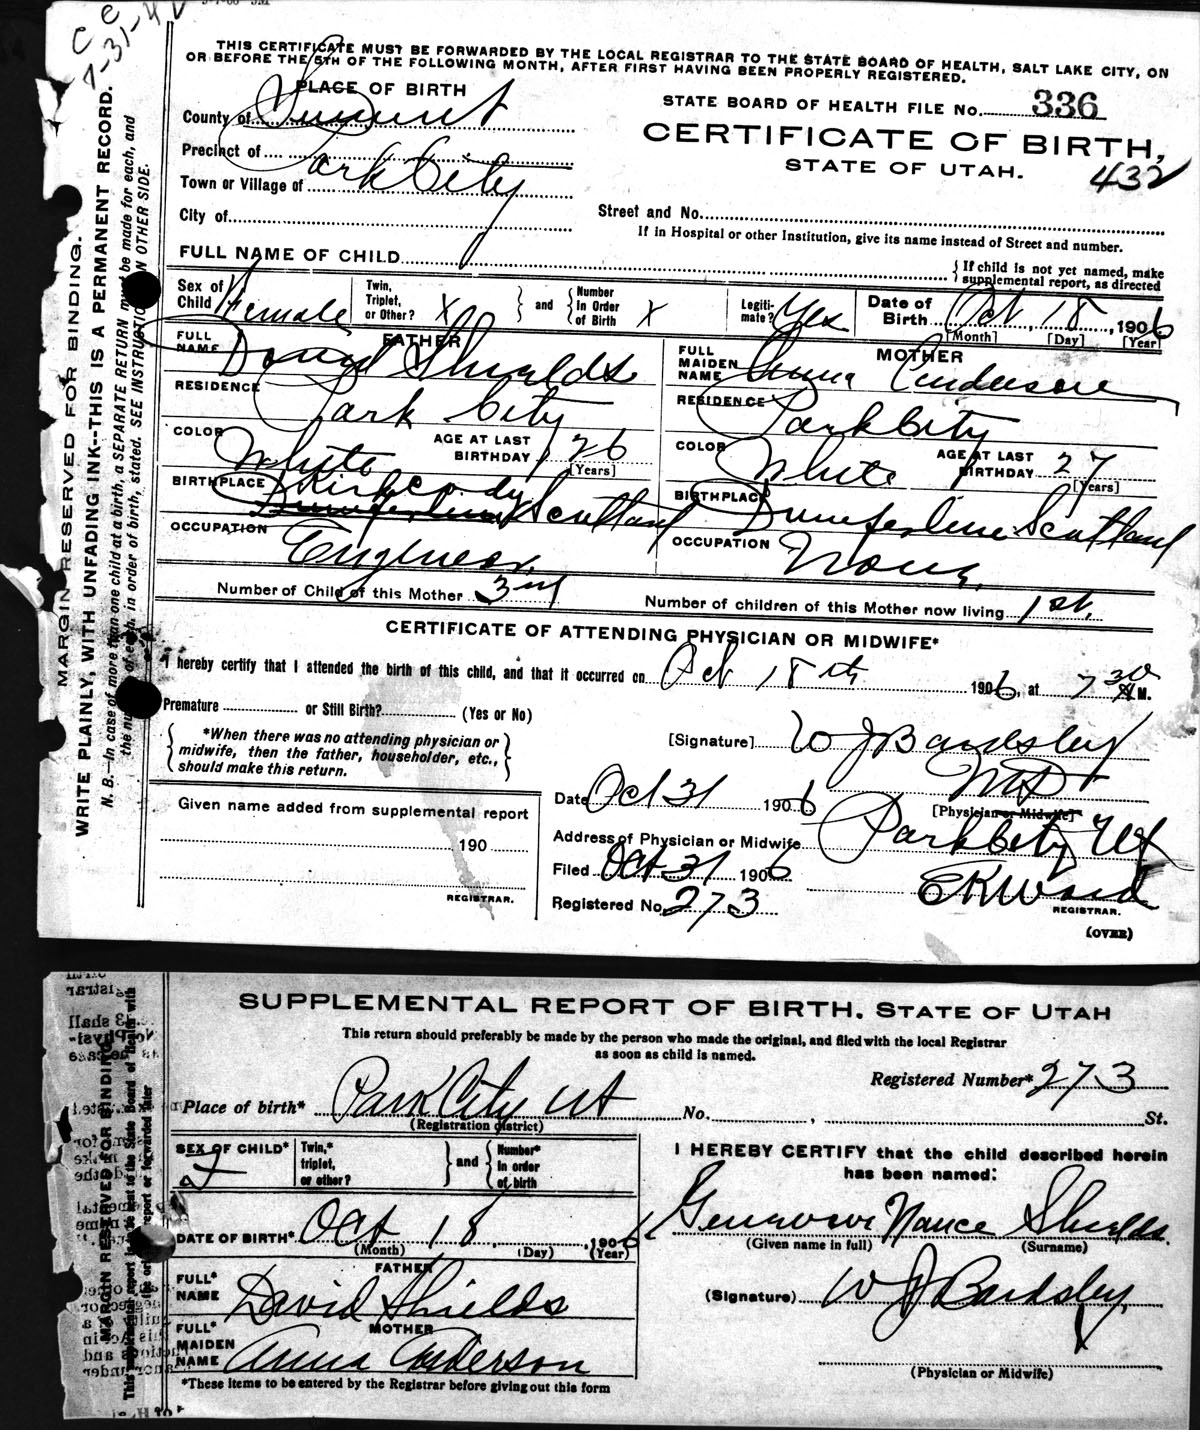 C C
7-31-42
THIS CERTIFICATE MUST BE FORWARDED BY THE LOCAL REGISTRAR TO THE STATE BOARD OF HEALTH, SALT LAKE CITY, ON
OR BEFORE THE 5TH OF THE FOLLOWING MONTH, AFTER FIRST HAVING BEEN PROPERLY REGISTERED.
PLACE OF BIRTH
County of Summit
Precinct of
Town or Village of Park City
City of
STATE BOARD OF HEALTH FILE No. 336
CERTIFICATE OF BIRTH,
STATE OF UTAH. 432
Street and No.
If in Hospital or other Institution, give its name instead of Street and number.
FULL NAME OF CHILD
If child is not yet named, make
supplemental report, as directed
Sex of Child Female Twin, Triplet, or Other? X and Number In Order of Birth X Legitimate? Yes Date of Birth Oct, 18, 1906
[Month] [Day] [Year]
FATHER
FULL NAME David Shields
RESIDENCE Park City
COLOR White AGE AT LAST BIRTHDAY 26
[Years]
BIRTHPLACE Kirkcaldy
Dunfermline Scotland
OCCUPATION Engineer
MOTHER
FULL MAIDEN NAME Anna Anderson
RESIDENCE Park City
COLOR White AGE AT LAST BIRTHDAY 27
[Years]
BIRTHPLACE Dumferline Scotland
OCCUPATION None.
Number of Child of this Mother 3rd Number of children of this Mother now living 1st.
CERTIFICATE OF ATTENDING PHYSICIAN OR MIDWIFE*
I hereby certify that I attended the birth of this child, and that it occurred on Oct 18th 1906, at 7 30 M.
Premature or Still Birth? (Yes or No)
*When there was no attending physician or
midwife, then the father, householder, etc.,
should make this return.
[Signature] W J Bardsley
MD
[Physician or Midwife]
Given name added from supplemental report
190
REGISTRAR.
Date Oct 31 1906
Address of Physician or Midwife Park City Ut
Filed Oct 31 1906
Registered No. 273
E K Ward
REGISTRAR.
(OVER)
MARGIN RESERVED FOR BINDING.
WRITE PLAINLY, WITH UNFADING INK--THIS IS A PERMANENT RECORD.
N. B.—In case of more than one child at a birth, a SEPARATE RETURN must be made for each, and
the number of each, in order of birth, stated. SEE INSTRUCTION ON OTHER SIDE.
SUPPLEMENTAL REPORT OF BIRTH. STATE OF UTAH
This return should preferably be made by the person who made the original, and filed with the local Registrar
as soon as child is named.
Registered Number* 273
Place of birth* Park City Ut No. , St.
(Registration district)
SEX OF CHILD* F Twin,* triplet, or other? and Number* in order of birth
DATE OF BIRTH* Oct 18, 1906
(Month) (Day) (Year)
FATHER
FULL* NAME David Shields
MOTHER
FULL* MAIDEN NAME Anna Anderson
*These items to be entered by the Registrar before giving out this form
I HEREBY CERTIFY that the child described herein
has been named:
Nance Shields.
(Given name in full) (Surname)
(Signature) W J Bardsley
(Physician or Midwife)
MARGIN RESERVED FOR BINDING